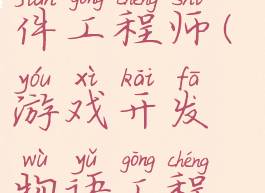 jiàn gōng chéng shī
件工程师(
yóu xì kāi fā
游戏开发
wù yǔ gōng chéng
物语工程